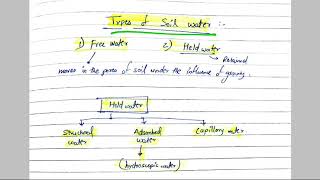 Types of Soil water :-
1) Free water 2) Held water
Retained
moves in the pores of soil under the influence of gravity.
Held water
Structural water Adsorbed water Capillary water
(hydroscopic water)